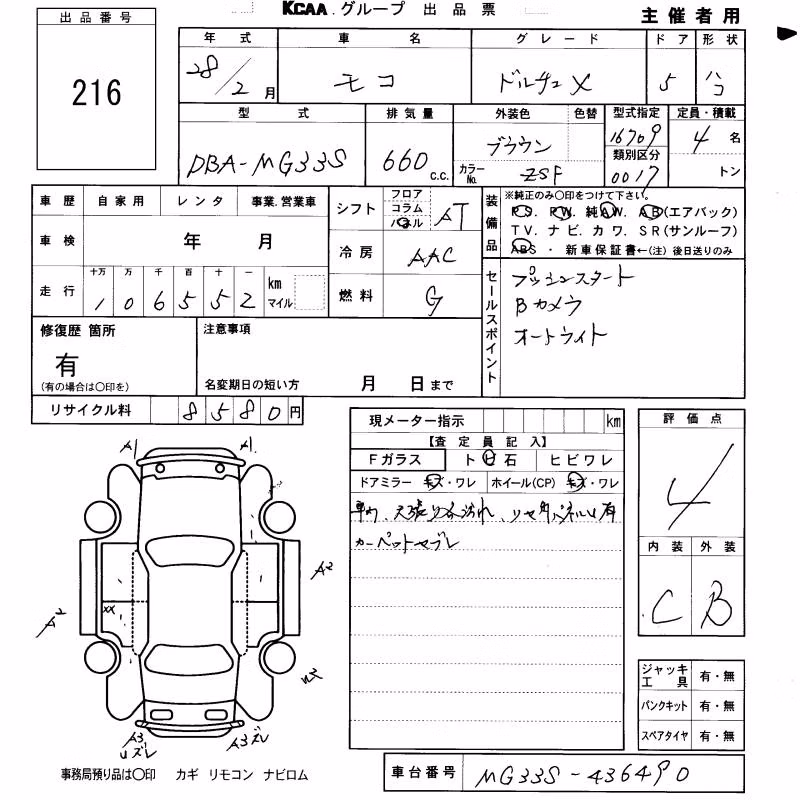 KCAA.グループ 出品票
主催者用
出品番号
216
年式 車名 グレード ドア 形状
28/2月 モコ ドルチェX 5 ハコ
型式 排気量 外装色 色替 型式指定 定員・積載
DBA-MG33S 660c.c. ブラウン 16709 4名
カラーNo. ZSF 類別区分 0017 トン
車歴 自家用 レンタ 事業.営業車
シフト フロア コラム パネル AT
車検 年 月
冷房 AAC
走行 十万 万 千 百 十 一 km マイル
1 0 6 5 5 2
燃料 G
装備品
※純正のみ○印をつけて下さい。
P.S. P.W. 純A.W. A.B(エアバック)
T.V. ナビ. カワ. S R(サンルーフ)
ABS ・ 新車保証書←(注) 後日送りのみ
セールスポイント
プッシュスタート
Bカメラ
オートライト
修復歴 箇所
有
(有の場合は○印を)
注意事項
名変期日の短い方 月 日まで
リサイクル料 8 5 8 0 円
現メーター指示 km
【査定員記入】
Fガラス トビ石 ヒビワレ
ドアミラー キズ・ワレ ホイール(CP) キズ・ワレ
カーペットセブレ
評価点
4
内装 外装
C B
A1 A1
A2
A2
XX
A3 A3ズレ
Uズレ
ジャッキ工具 有・無
パンクキット 有・無
スペアタイヤ 有・無
事務局預り品は○印 カギ リモコン ナビロム
車台番号 MG33S-436490